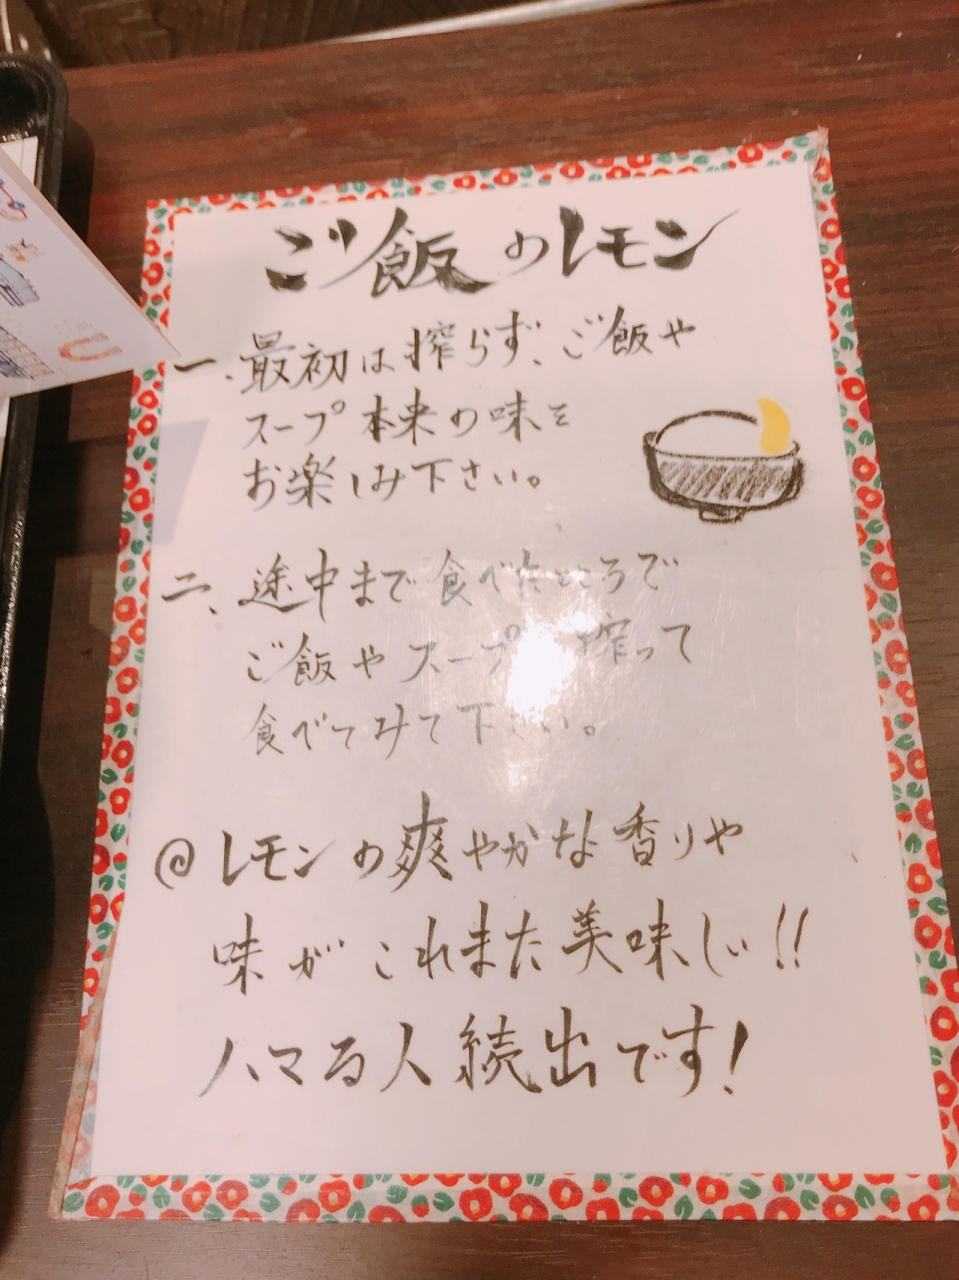 ご飯のレモン
一、最初は搾らず、ご飯や
スープ本来の味を
お楽しみ下さい。
二、途中まで食べたところで
ご飯やスープ 搾って
食べてみて下さい。
@レモンの爽やかな香りや
味がこれまた美味しい!!
ハマる人続出です!